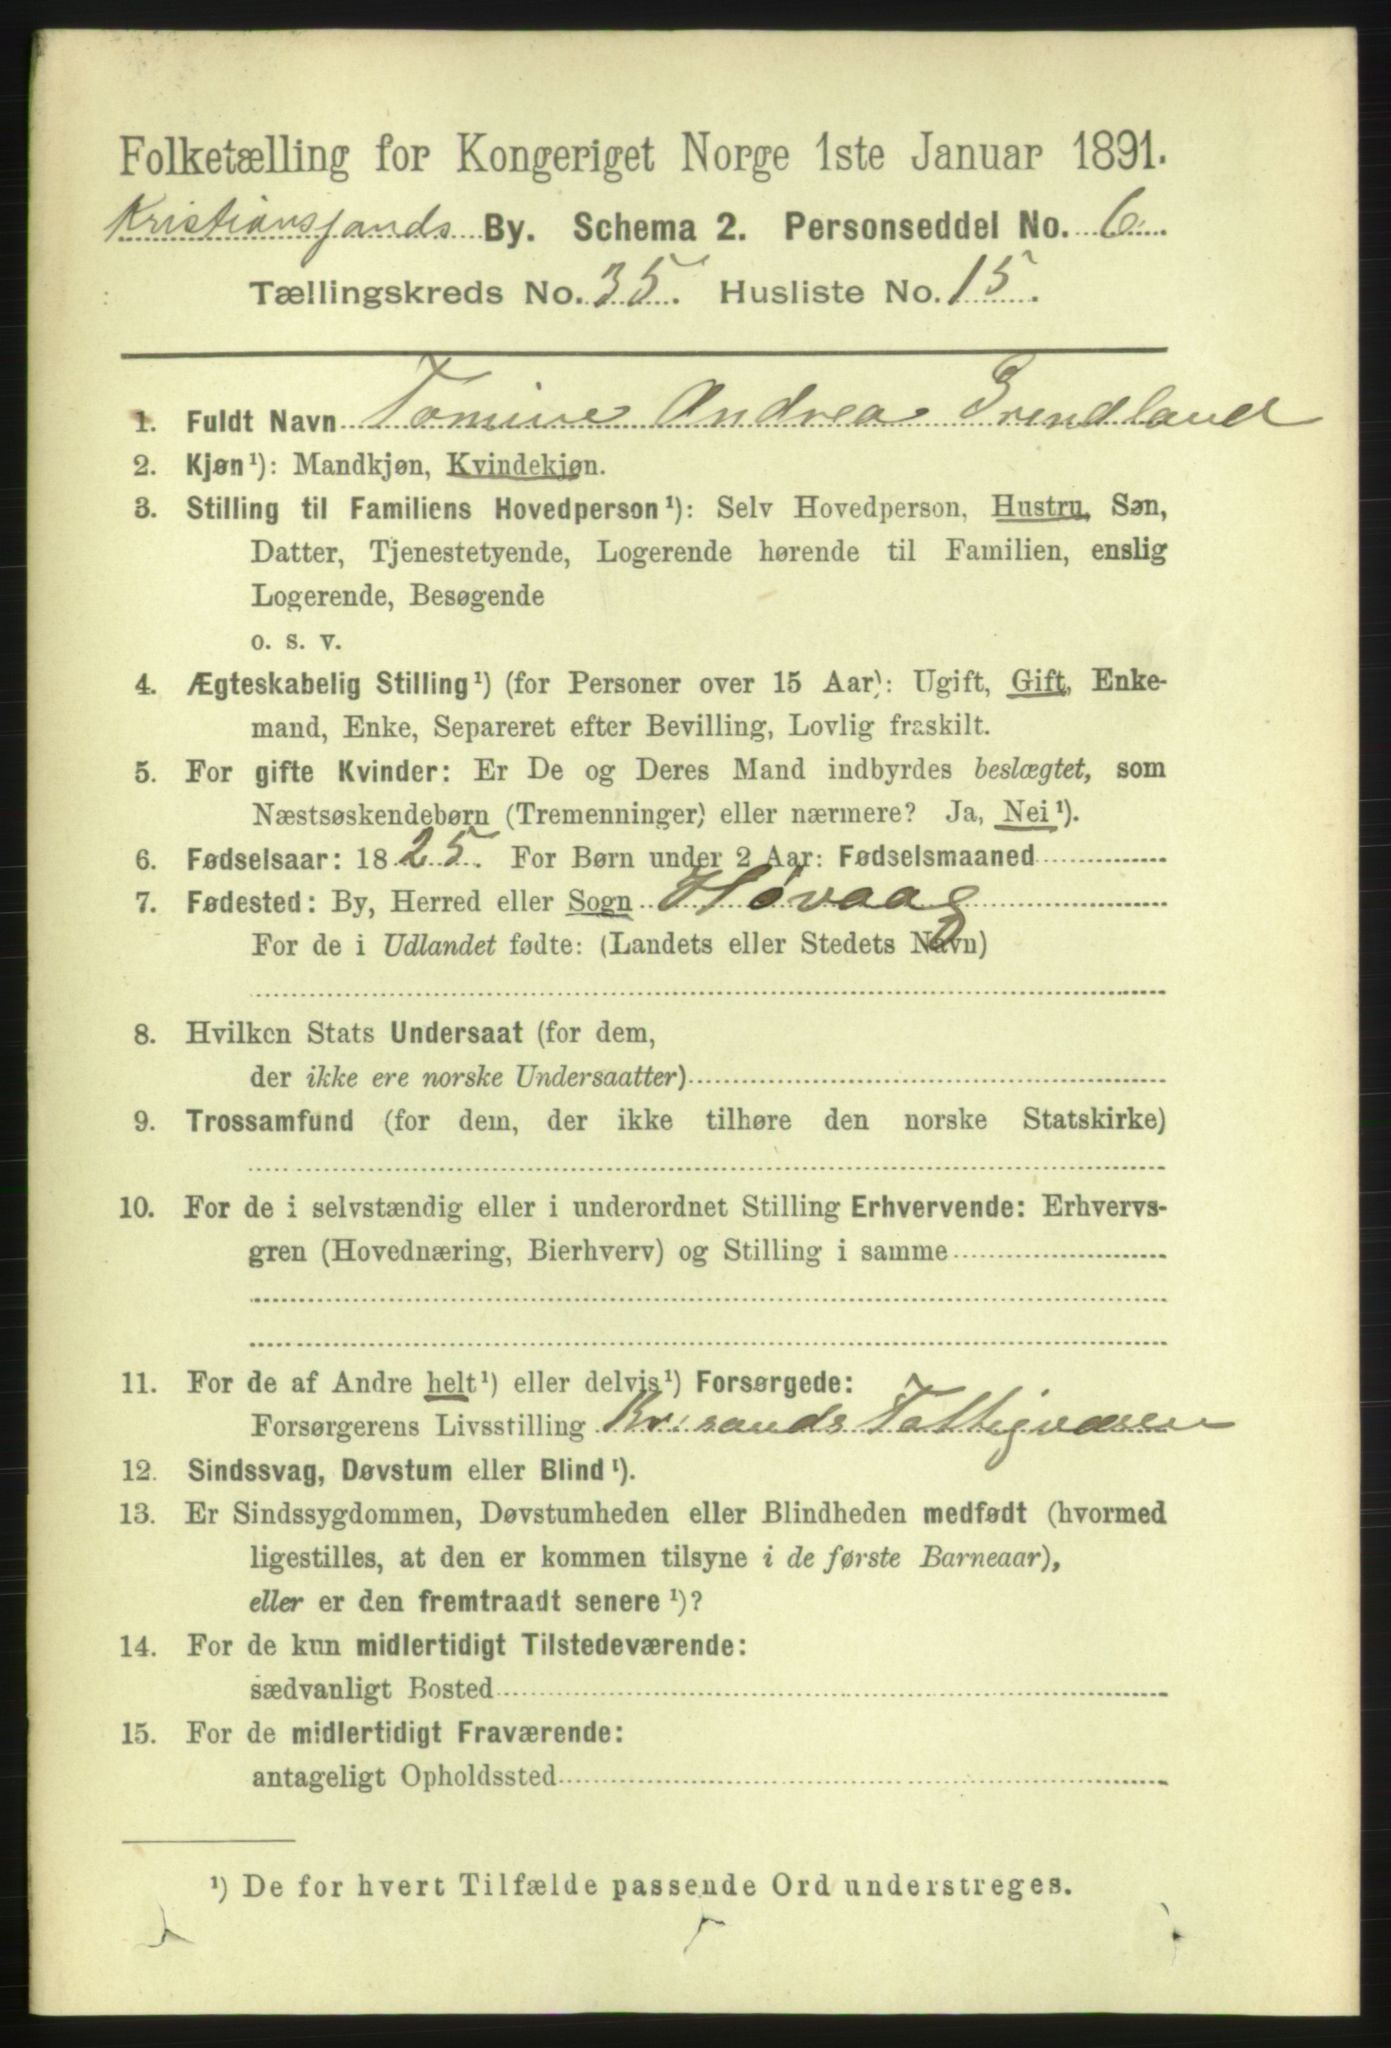 Folketælling for Kongeriget Norge 1ste Januar 1891.
Kristiansands By. Schema 2. Personseddel No. 6.
Tællingskreds No. 35. Husliste No. 15.
1. Fuldt Navn Tomine Andrea Grendland
2. Kjøn¹): Mandkjøn, Kvindekjøn.
3. Stilling til Familiens Hovedperson¹): Selv Hovedperson, Hustru, Søn,
Datter, Tjenestetyende, Logerende hørende til Familien, enslig
Logerende, Besøgende
o. s. v.
4. Ægteskabelig Stilling¹) (for Personer over 15 Aar): Ugift, Gift, Enke-
mand, Enke, Separeret efter Bevilling, Lovlig fraskilt.
5. For gifte Kvinder: Er De og Deres Mand indbyrdes beslægtet, som
Næstsøskendebørn (Tremenninger) eller nærmere? Ja, Nei¹).
6. Fødselsaar: 1825. For Børn under 2 Aar: Fødselsmaaned
7. Fødested: By, Herred eller Sogn Høvaag
For de i Udlandet fødte: (Landets eller Stedets Navn)
8. Hvilken Stats Undersaat (for dem,
der ikke ere norske Undersaatter)
9. Trossamfund (for dem, der ikke tilhøre den norske Statskirke)
10. For de i selvstændig eller i underordnet Stilling Erhvervende: Erhvervs-
gren (Hovednæring, Bierhverv) og Stilling i samme
11. For de af Andre helt¹) eller delvis¹) Forsørgede:
Forsørgerens Livsstilling Kr.sands Fattigvæsen
12. Sindssvag, Døvstum eller Blind¹).
13. Er Sindssygdommen, Døvstumheden eller Blindheden medfødt (hvormed
ligestilles, at den er kommen tilsyne i de første Barneaar),
eller er den fremtraadt senere¹)?
14. For de kun midlertidigt Tilstedeværende:
sædvanligt Bosted
15. For de midlertidigt Fraværende:
antageligt Opholdssted
¹) De for hvert Tilfælde passende Ord understreges.